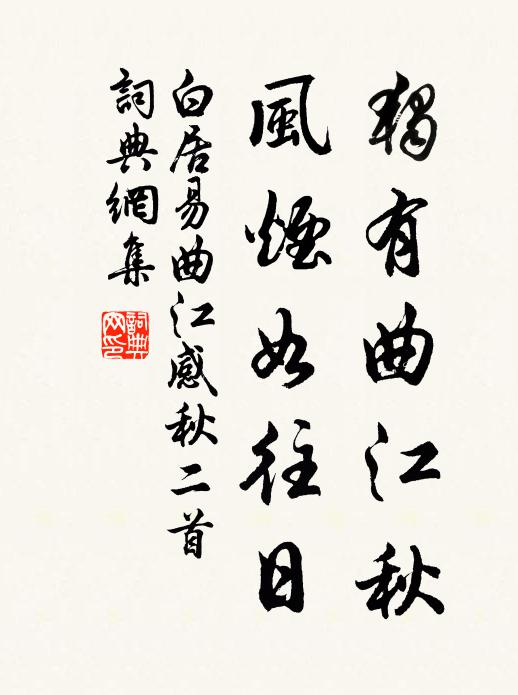 獨有曲江秋
風煙如往日
白居易曲江感秋二首
詞典網集
詞典網印